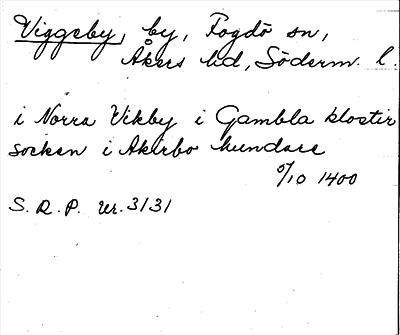 Viggeby, by, Fogdö sn,
Åkers hd, Söderm. l.
i Norra Vikby i Gambla klostir
socken i Akirbo hundare
9/10 1400
S. R. P. nr. 3131